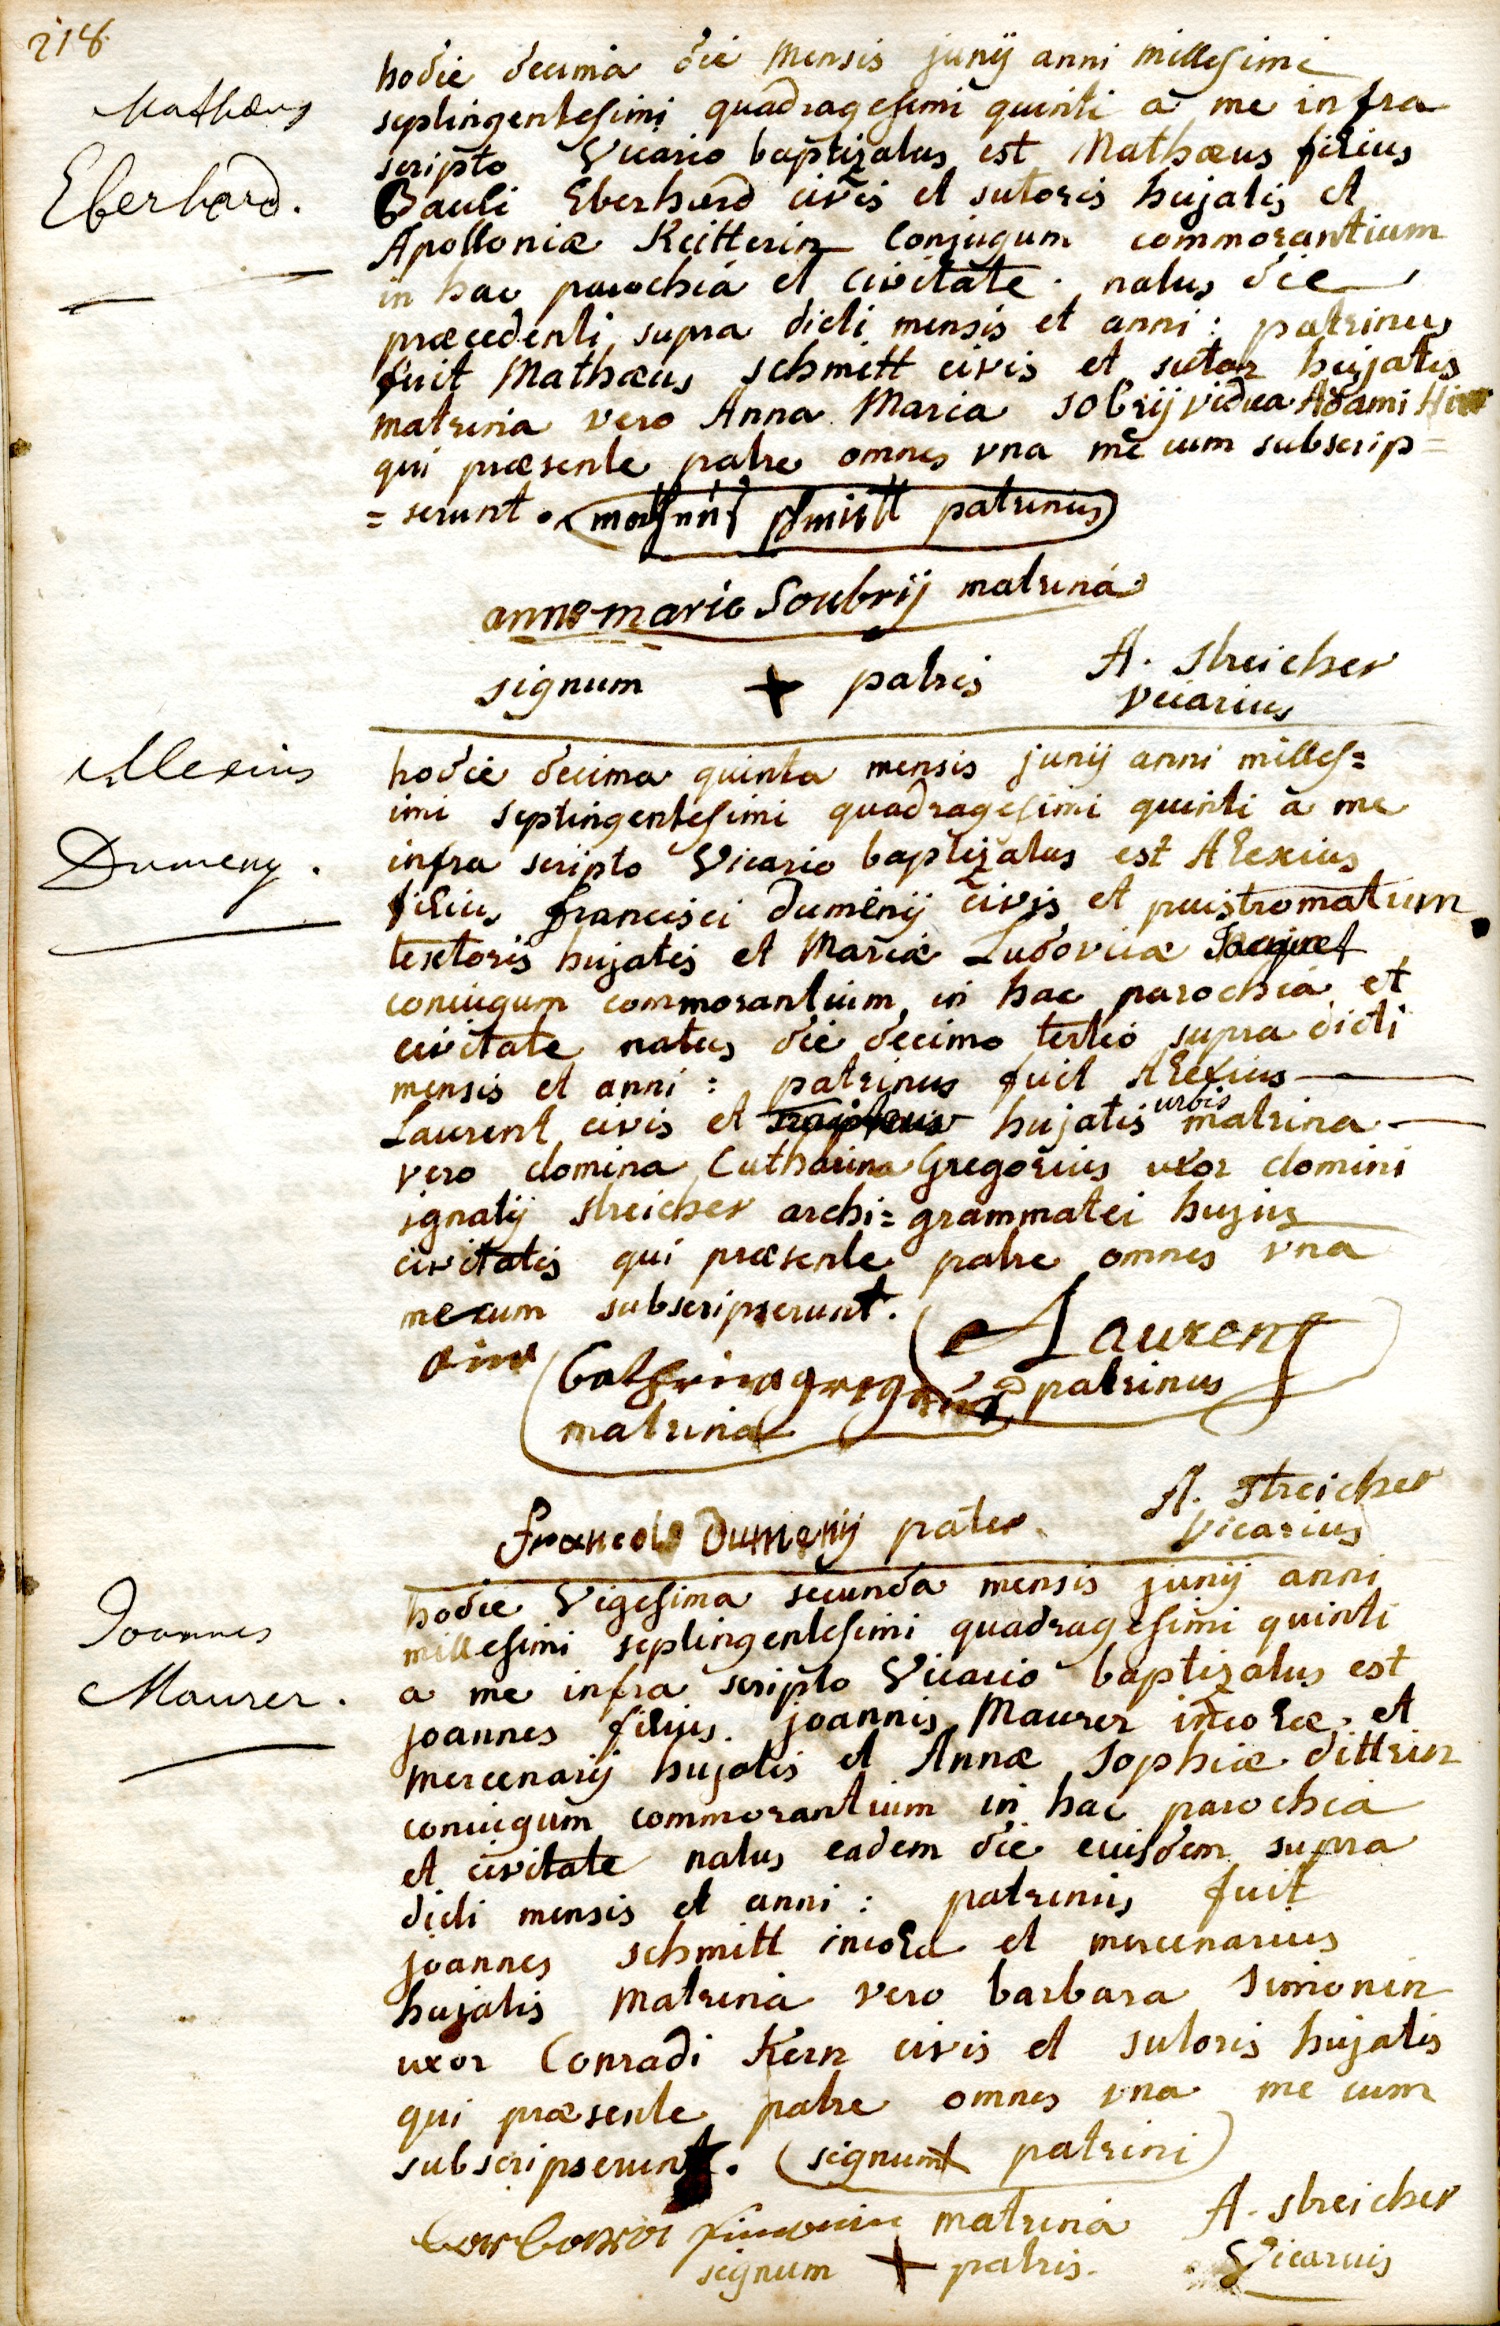 218.
Mathæus
Eberhard.
hodie decima die Mensis junij anni millesimi
septingentesimi quadragesimi quinti a me infra
scripto Vicario baptizatus est Mathæus filius
Pauli Eberhard civis et sutoris hujatis et
Apolloniæ Reitterin Conjugum commorantium
in hac parochia et civitate. natus die
præcedenti supra dicti mensis et anni: patrinus
fuit Mathæus schmitt civis et sutor hujatis
matrina vero Anna Maria sobrij vidua Adami
qui præsente patre omnes vna me cum subscrip=
=serunt. schmitt patrinus
anne marie Soubrij matrina
signum + patris A. Streicher
Vicarius
Alexius
Dumeny.
hodie decima quinta mensis junij anni milles=
imi septingentesimi quadragesimi quinti a me
infra scripto Vicario baptizatus est Alexius
filius francisci dumenij civis et peristromatum
textoris hujatis et Mariæ Ludovicæ Jacquet
coniugum commorantium in hac parochia et
civitate natus die decimo tertio supra dicti
mensis et anni: patrinus fuit Alexius
Laurent civis et hujatis urbis matrina
vero domina Catharina Gregorius uxor domini
ignatij streicher archi=grammatei hujus
civitatis qui præsente patre omnes vna
me cum subscripserunt.
A Laurent
Catherina gregorius patrinus
matrina
A. Streicher
francois Dumenij pater Vicarius
Joannes
Maurer.
hodie Vigesima secunda mensis junij anni
millesimi septingentesimi quadragesimi quinti
a me infra scripto Vicario baptizatus est
joannes filius joannis Maurer incolæ et
mercenarij hujatis et Annæ Sophiæ dittrin
coniugum commorantium in hac parochia
et civitate natus eadem die eiusdem supra
dicti mensis et anni: patrinus fuit
joannes schmitt incola et mercenarius
hujatis Matrina vero barbara Simonin
uxor Conradi Kern civis et sutoris hujatis
qui præsente patre omnes vna me cum
subscripserunt. (signum patrini)
barbara simonin matrina A. streicher
signum + patris. Vicarius